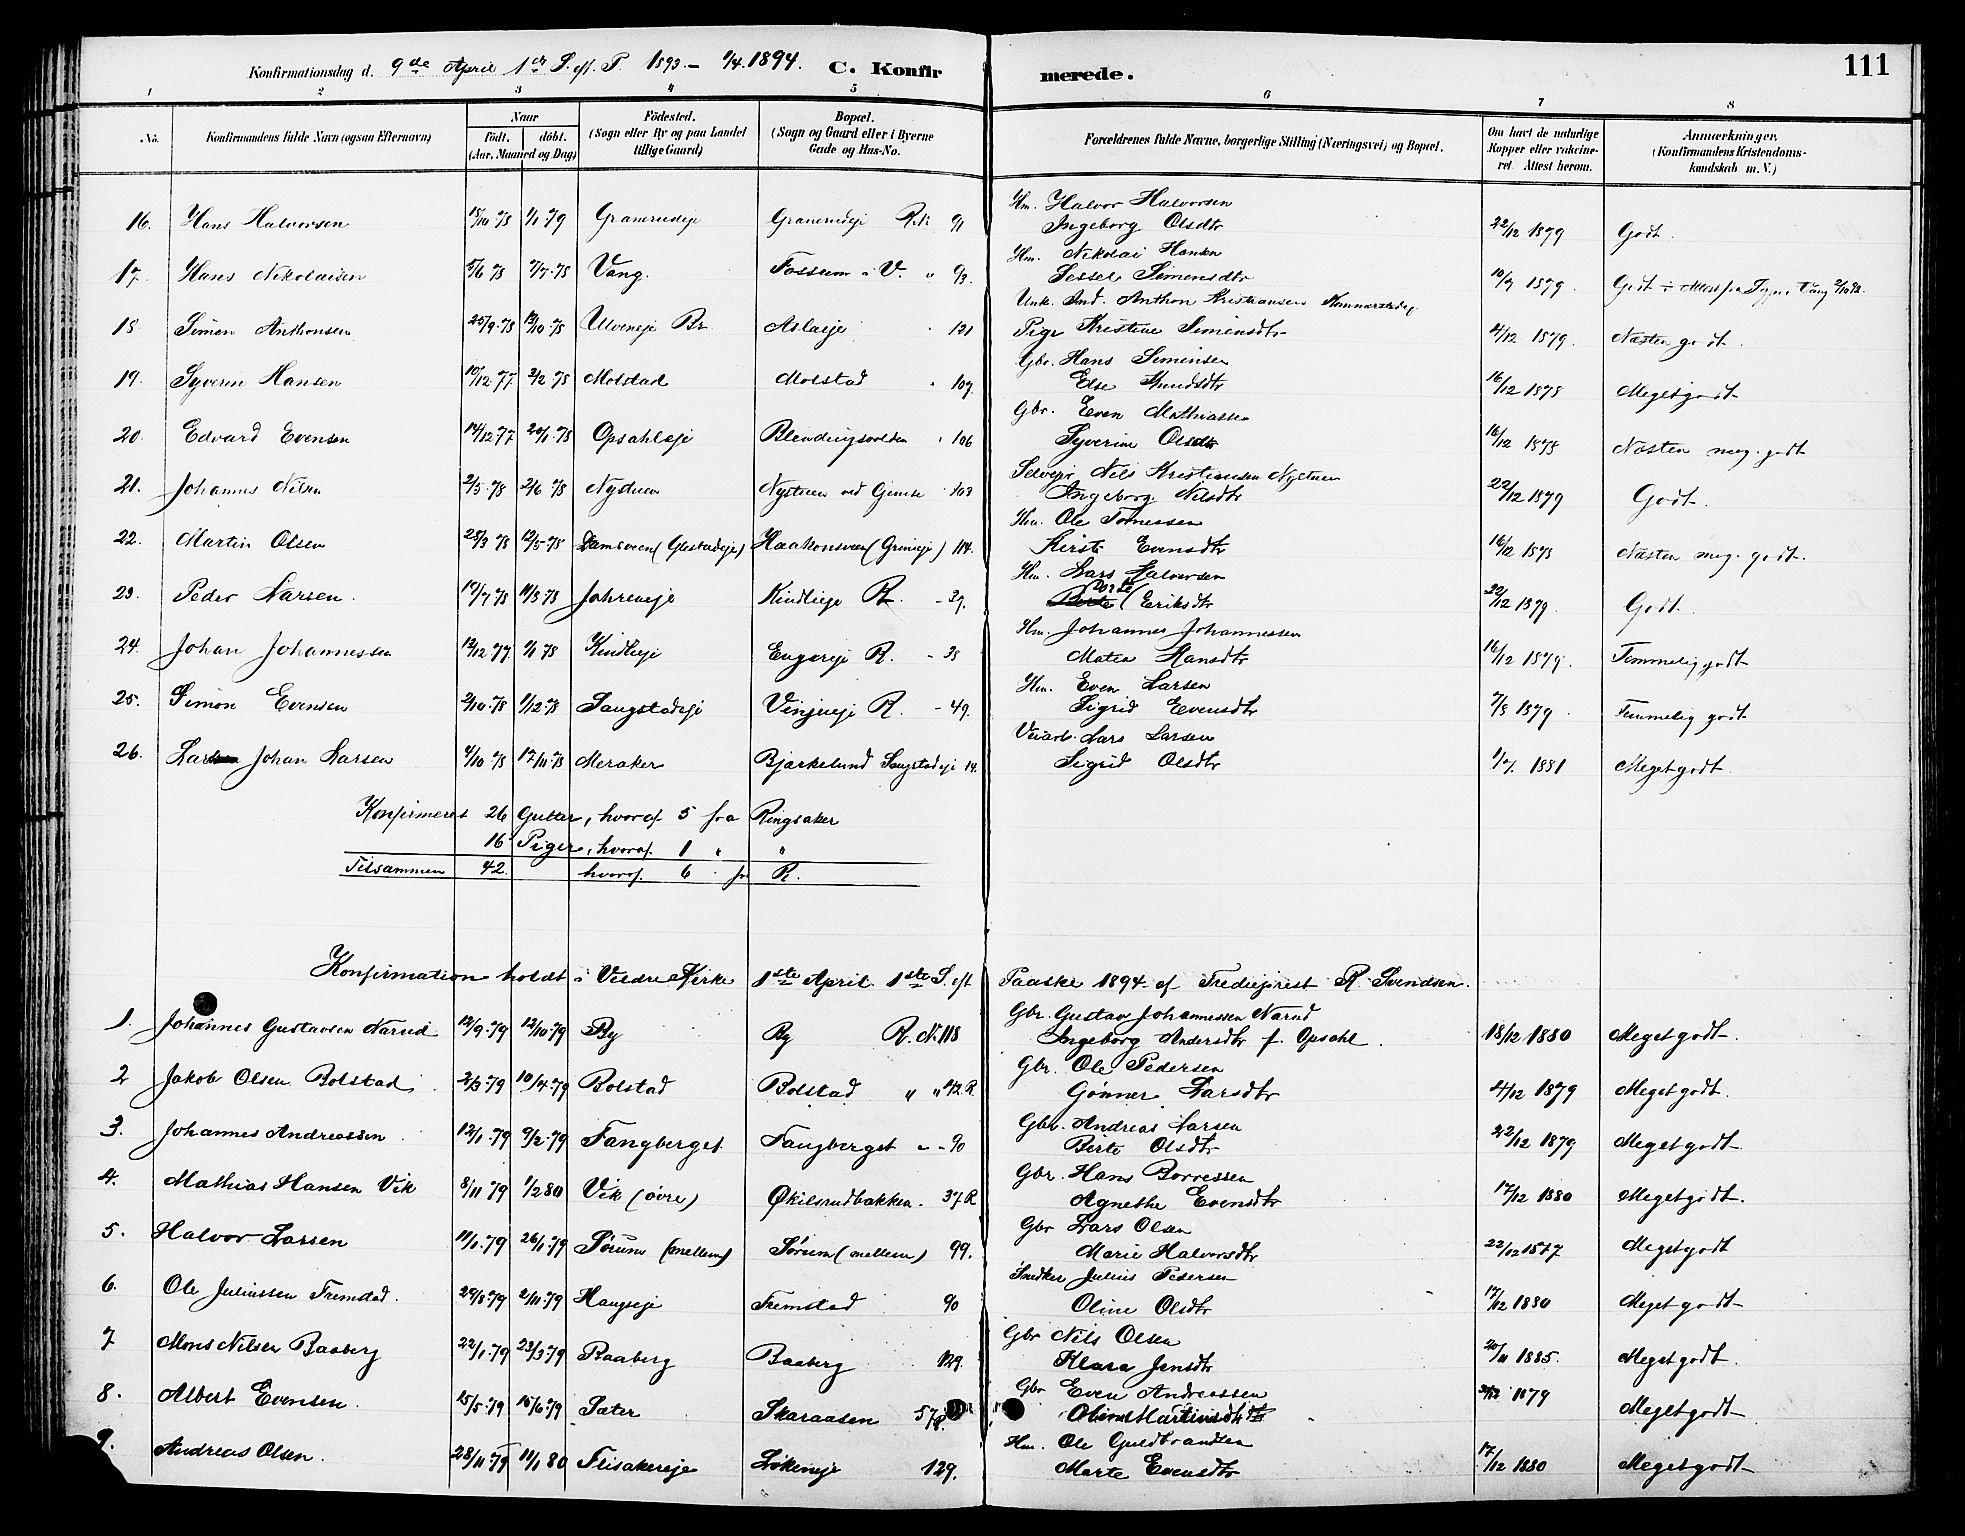 Konfirmationsdag d. 9de April 1ste S. eft. P. 1893 - 1/4. 1894. C. Konfirmerede. 111
1 2 3 4 5 6 7 8
No. Konfirmandens fulde Navn (ogsaa Efternavn) Naar Födt. döbt. (Aar, Maaned og Dag) Födested. (Sogn eller By og paa Landet tillige Gaard) Bopæl. (Sogn og Gaard eller i Byerne Gade og Hus-No. Forældrenes fulde Navne, borgerlige Stilling (Næringsvei) og Bopæl. Om havt de naturlige Kopper eller vakcineret. Attest herom. Anmærkninger. (Konfirmandens Kristendomskundskab m. V.)
16. Hans Halvorsen 15/10 78 1/1 79 Granerudeje Granerudeje R.k. 91 Hm. Halvor Halvorsen Ingeborg Olsdtr 22/12 1879 Godt.
17. Hans Nikolaisen 5/6 78 7/7 78 Vang. Fossum i V. " 93. Hm. Nikolai Hansen Sessel Simensdtr 10/9 1879 Godt
18. Simen Anthonsen 25/9 78 13/10 78 Ulveneje Br. Aslaeje " 121 Unk. Ind. Anthon Kristiansen Pige Kristine Simensdtr 4/12 1879. Næsten godt.
19. Syverin Hansen 10/12 77 2/2 78 Molstad Molstad " 109. Gbr. Hans Simensen Else Knudsdtr 16/12 1878 Meget godt
20. Edvard Evensen 14/12 77 20/1 78 Opsahleje Blendingsvolden " 106 Gbr. Even Mathiassen Syverine Olsdtr 16/12 1878 Næsten meg. godt
21. Johannes Nilsen 2/5 78 2/6 78 Nystuen Nystuen ved Gunse 103 Selvejer Nils Kristiansen Nystuen Ingeborg Nilsdtr 22/12 1879 Godt.
22. Martin Olsen 25/3 78 12/5 78 Damsveen (Glestadeje) Haakonsveen (Grineje) 114. Hm. Ole Tomessen Kirsti Evensdtr 16/12 1878 Næsten meg. godt.
23. Peder Larsen. 19/7 78 11/8 78 Jahreneje Kindlieje R. - 37. Hm. Lars Halvorsen Dorte Eriksdtr 22/12 1879. Godt.
24. Johan Johannessen 12/12 77 1/1 78 Kindlieje Engereje R. - 38 Hm. Johannes Johannessen Matea Hansdtr 16/12 1879. Temmelig godt
25. Simon Evensen 2/10 78 1/12 78 Saugstadeje Vinjueje R. - 49. Hm. Even Larsen Sigrid Evensdtr 7/8 1879 Temmelig godt
26. Lars Johan Larsen 4/10 78 17/11 78 Meraker Bjærkelund Saugstadeje 14. Veiarb. Lars Larsen Sigrid Olsdtr 1/7 1881 Meget godt.
Konfirmeret 26 Gutter, hvoraf 5 fra Ringsaker
16 Piger, hvoraf. 1 " "
Tilsammen 42. hvoraf. 6 fra R.
Konfirmation holdt i Veldre Kirke 1ste April. 1ste S. eft Paaske 1894 af Trediepræst R. Svendsen.
1. Johannes Gustavsen Narud 12/9 79 12/10 79 By By R. N. 118 Gbr. Gustav Johannessen Narud Ingeborg Andersdtr f. Opsahl. 18/12 1880 Meget godt.
2 Jakob Olsen Bolstad 2/3 79 10/4 79 Bolstad Bolstad " " 42 R Gbr. Ole Pedersen Gønner Larsdtr 4/12 1879 Meget godt.
3. Johannes Andreassen 12/1 79 9/2 79 Fangberget Fangberget " - 90 Gbr. Andreas Larsen Birte Olsdtr 22/12 1879 Meget godt.
4. Mathias Hansen Vik 8/11 79 1/2 80 Vik (övre) Økilsrudbakken. 37 R Gbr. Hans Borressen Agnethe Evensdtr 17/12 1880 Meget godt.
5. Halvor Larsen 11/1 79 26/1 79 Sørum (mellem) Sørum (mellem) 99. Gbr Lars Olsen Marie Halvorsdtr 22/12 1877 Meget godt
6. Ole Juliussen Fremstad. 29/8 79 2/11 79 Haugseje Fremstad 90 Snedker Julius Pedersen Oline Olsdtr 17/12 1880 Meget godt
7 Mons Nilsen Baaberg 22/1 79 23/3 79 Baaberg Baaberg 129. Gbr Nils Olsen Klara Jensdtr 20/11 1885. Meget godt.
8. Albert Evensen. 15/5 79 15/6 79 Sæter Skaraasen 57 Gbr Even Andreassen Oline Martinsdtr 1879 Meget godt.
9. Andreas Olsen. 28/11 79 11/1 80 Flisakereje Løkeneje 129. Hm. Ole Guldbrandsen Marte Evensdtr 17/12 1880 Meget godt